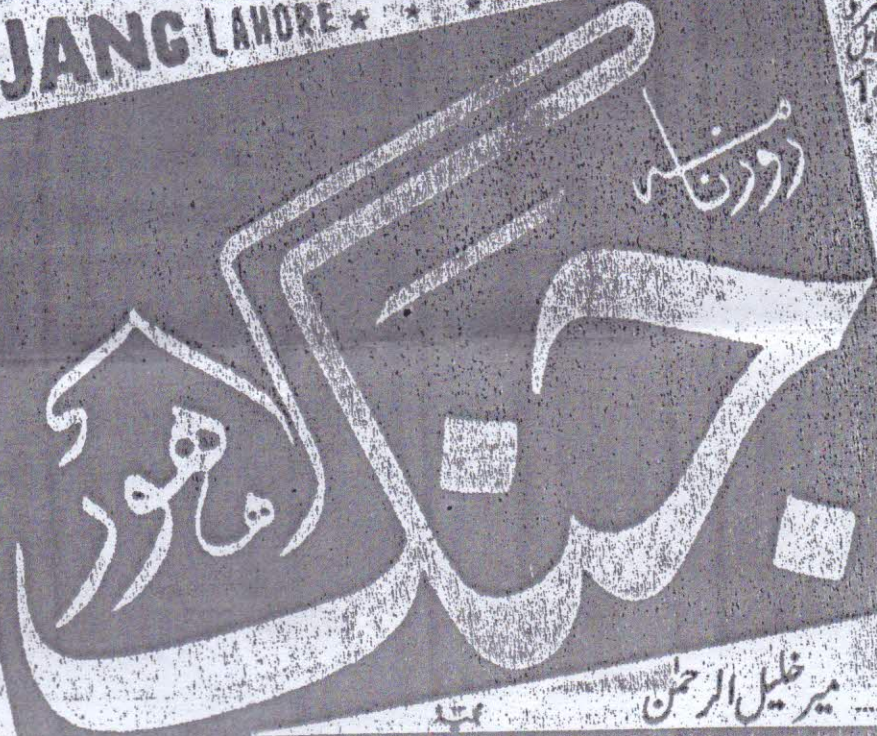 JANG LAHORE
روزنامہ
جنگ
لاہور
میر خلیل الرحمٰن